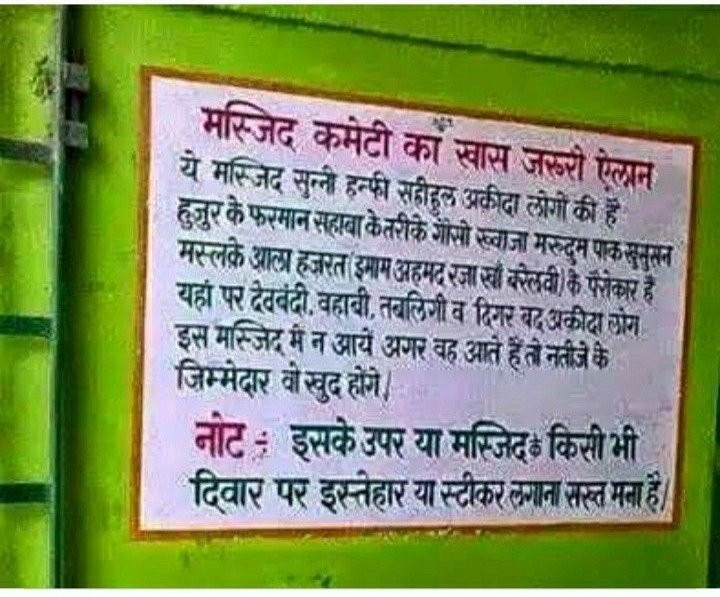 मस्जिद कमेटी का खास जरूरी ऐलान
ये मस्जिद सुन्नी हन्फी सहीहुल अकीदा लोगो की है
हुजुर के फरमान सहाबा के तरीके गौसो ख्वाजा मख्दुम पाक खुसुसन
मस्लके आला हजरत (इमाम अहमद रजा खाँ बरेलवी) के पैरोकार है
यहां पर देवबंदी, वहाबी, तबलिगी व दिगर बद अकीदा लोग
इस मास्जिद में न आयें अगर वह आते हैं तो नतीजे के
जिम्मेदार वो खुद होंगे /
नोट ÷ इसके उपर या मस्जिद के किसी भी
दिवार पर इस्तेहार या स्टीकर लगाना सख्त मना है /